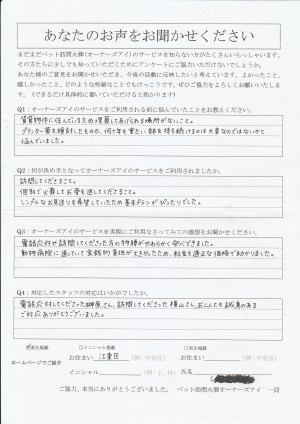 あなたのお声をお聞かせください
まだまだペット訪問火葬(オーナーズアイ)のサービスを知らない方がたくさんいらっしゃいます。
その方たちに少しでも知っていただくためにアンケートにご協力いただけないでしょうか。
あなた様のご意見をお聞かせいただき、今後の活動に反映したいと考えています。よかったこと、
嬉しかったこと、どのような些細なことでもけっこうです。ぜひご協力をよろしくお願いいた
します。(できるだけ具体的に書いていただけると助かります)
Q1:オーナーズアイのサービスをご利用される前に悩んでいたことをお教えください。
賃貸物件に住んでいるため埋葬してあげられる場所がないこと。
プランター葬も検討したものの、何十年も重たい鉢を持ち続けるのは大変なのではないかと
悩んでいました。
Q2:何が決め手となってオーナーズアイのサービスをご利用されましたか。
訪問してくださること。
個別で火葬してお骨を返してくださること。
シンプルなお見送りを希望していたため基本プランがぴったりでした。
Q3:オーナーズアイのサービスを実際にご利用なさってみての感想をお聞かせください。
電話応対をしてくださった方の物腰がやわらかく安心できました。
動物病院に通っていて金銭的負担が大きかったため、料金も適正な価格で助かりました。
Q4:対応したスタッフの対応はいかがでしたか。
電話応対してくださった榊原さん、訪問してくださった横山さん、お二人とも誠意のある
ご対応ありがとうございました。
実名掲載 □イニシャル掲載 □実名掲載
ホームページでご紹介
お住まい 江東区 (例:中央区) お住まい (例:中央区)
イニシャル (例:J.H) 氏名
ご協力、本当にありがとうございました。 ペット訪問火葬オーナーズアイ 一同